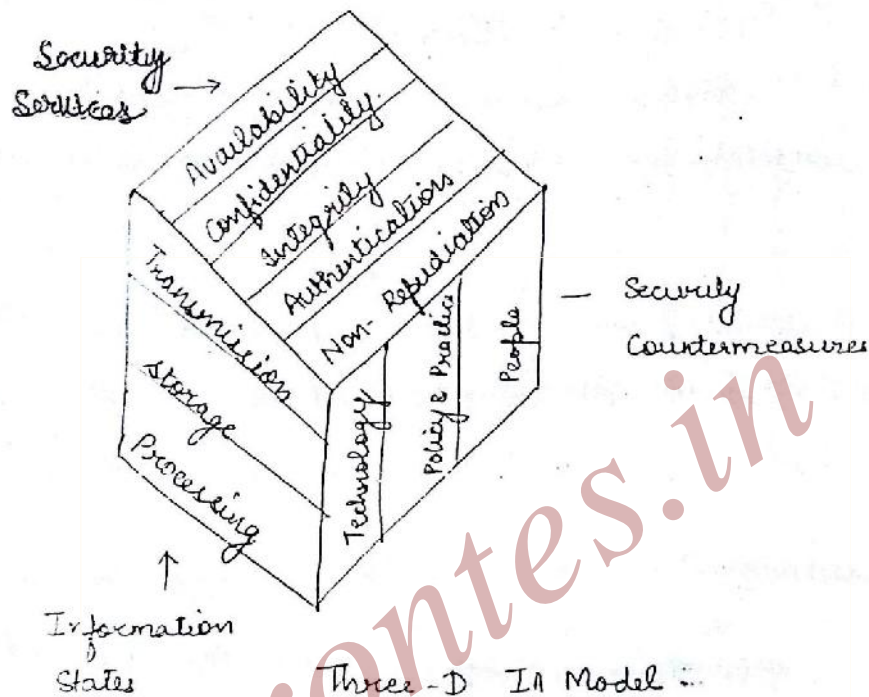 Security
Services
Availability
Confidentiality
Integrity
Authentication
Non-Repudiation
Transmission
Storage
Processing
Technology
Policy & Practice
People
Security
Countermeasures
Information
States
Three-D IA Model :-
ontes.in